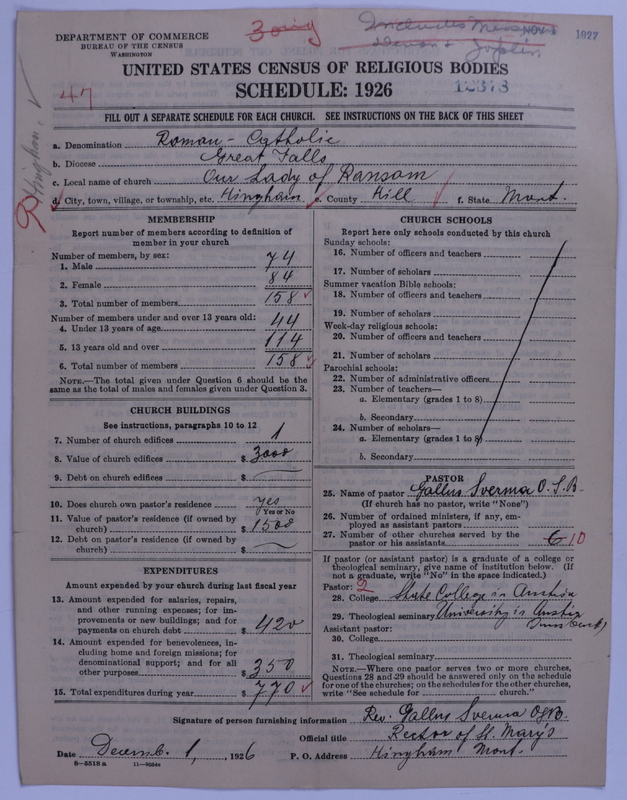 DEPARTMENT OF COMMERCE
BUREAU OF THE CENSUS
WASHINGTON
Includes Mens
Devon & Joplin
NOV
1927
UNITED STATES CENSUS OF RELIGIOUS BODIES
SCHEDULE: 1926
47
12373
Hingham
FILL OUT A SEPARATE SCHEDULE FOR EACH CHURCH. SEE INSTRUCTIONS ON THE BACK OF THIS SHEET
a. Denomination Roman - Catholic
b. Diocese Great Falls
c. Local name of church Our Lady of Ransom
d. City, town, village, or township, etc. Hingham e. County Hill f. State Mont.
MEMBERSHIP
Report number of members according to definition of member in your church
Number of members, by sex:
1. Male 74
2. Female 84
3. Total number of members 158
Number of members under and over 13 years old:
4. Under 13 years of age 44
5. 13 years old and over 114
6. Total number of members 158
NOTE.—The total given under Question 6 should be the
same as the total of males and females given under Question 3.
CHURCH BUILDINGS
See instructions, paragraphs 10 to 12
7. Number of church edifices 1
8. Value of church edifices $ 3000
9. Debt on church edifices $ —
10. Does church own pastor's residence yes
Yes or No
11. Value of pastor's residence (if owned by
church) $ 1500
12. Debt on pastor's residence (if owned by
church) $ —
EXPENDITURES
Amount expended by your church during last fiscal year
13. Amount expended for salaries, repairs,
and other running expenses; for im-
provements or new buildings; and for
payments on church debt $ 420
14. Amount expended for benevolences, in-
cluding home and foreign missions; for
denominational support; and for all
other purposes $ 350
15. Total expenditures during year $ 770
CHURCH SCHOOLS
Report here only schools conducted by this church
Sunday schools:
16. Number of officers and teachers
17. Number of scholars
Summer vacation Bible schools:
18. Number of officers and teachers
19. Number of scholars
Week-day religious schools:
20. Number of officers and teachers
21. Number of scholars
Parochial schools:
22. Number of administrative officers
23. Number of teachers—
a. Elementary (grades 1 to 8)
b. Secondary
24. Number of scholars—
a. Elementary (grades 1 to 8)
b. Secondary
PASTOR
25. Name of pastor Gallus Sverma O.S.B.
(If church has no pastor, write "None")
26. Number of ordained ministers, if any, em-
ployed as assistant pastors
27. Number of other churches served by the
pastor or his assistants 6 10
If pastor (or assistant pastor) is a graduate of a college or
theological seminary, give name of institution below. (If
not a graduate, write "No" in the space indicated.)
Pastor: 2
28. College State College in Austria
29. Theological seminary University in Austria
Assistant pastor:
30. College
31. Theological seminary
NOTE.—Where one pastor serves two or more churches,
Questions 28 and 29 should be answered only on the schedule
for one of the churches; on the schedules for the other churches,
write "See schedule for church."
Signature of person furnishing information Rev. Gallus Sverma OSB.
Official title Rector of St. Mary's
Date Decemb. 1, 1926 P. O. Address Hingham Mont.
8—5518 a